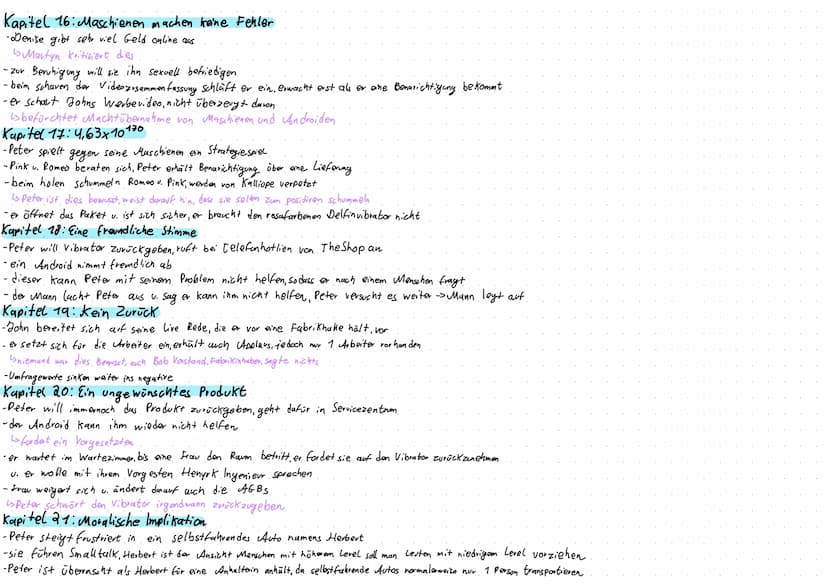 Kapitel 16: Maschienen machen keine Fehler
- Denise gibt sehr viel Geld online aus
↳ Martyn kritisiert dies
- zur Beruhigung will sie ihn sexuell befriedigen
- beim schauen der Videozusammenfassung schläft er ein, erwacht erst als er eine Benarichtigung bekommt
- er schaut Johns Werbevideo, nicht überzeugt davon
↳ befürchtet Machtübernahme von Maschienen und Androiden
Kapitel 17: 4,63x10^170
- Peter spielt gegen seine Maschienen ein Strategiespiel
- Pink u. Romeo beraten sich, Peter erhält Benarichtigung über eine Lieferung
- beim holen schummeln Romeo u. Pink, werden von Kalliope verpetzt
↳ Peter ist dies bewusst, weist darauf hin, dass sie selten zum positiven schummeln
- er öffnet das Paket u. ist sich sicher, er braucht den rosafarbenen Delfinvibrator nicht
Kapitel 18: Eine freundliche Stimme
- Peter will Vibrator zurückgeben, ruft bei Telefonhotlien von TheShop an
- ein Android nimmt fremdlich ab
- dieser kann Peter mit seinem Problem nicht helfen, sodass er nach einem Menschen fragt
- der Mann lacht Peter aus u. sag er kann ihm nicht helfen, Peter versucht es weiter -> Mann legt auf
Kapitel 19: Kein Zurück
- John bereitet sich auf seine Live Rede, die er vor eine Fabrikhalle hält, vor
- er setzt sich für die Arbeiter ein, erhält auch Applaus, jedoch nur 1 Arbeiter vorhanden
↳ niemand war dies Bewusst, auch Bob Vorstand, Fabrikinhaber, sagte nichts
- Umfragewerte sinken weiter ins negative
Kapitel 20: Ein ungewünschtes Produkt
- Peter will immernoch das Produkt zurückgeben, geht dafür in Servicezentrum
- der Android kann ihm wieder nicht helfen
↳ fordert ein Vorgesetzten
- er wartet im Wartezimmer, bis eine Frau den Raum betritt, er fordet sie auf den Vibrator zurückzunehmen
u. er wolle mit ihrem Vorgesten Henyrk Ingenieur sprechen
- Frau weigert sich u. ändert darauf auch die AGBs
↳ Peter schwört den Vibrator irgendwann zurückzugeben
Kapitel 21: Moralische Implikation
- Peter steigt frustriert in ein selbstfahrendes Auto namens Herbert
- sie führen Smalltalk, Herbert ist der Ansicht Menschen mit höherem Level soll man Leuten mit niedrigem Level vorziehen
- Peter ist überrascht als Herbert für eine Anhalterin anhält, da selbstfahrende Autos normalerweise nur 1 Person transportieren